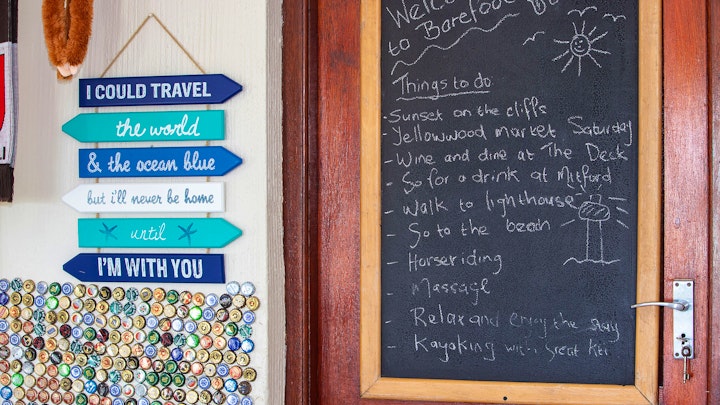 I COULD TRAVEL
the world
& the ocean blue
but i'll never be home
until
I'M WITH YOU
Welcome
to Barefoot
Things to do
- Sunset on the cliffs
- Yellowwood market Saturday
- Wine and dine at The Deck
- Go for a drink at Mitford
- Walk to lighthouse
- Go to the beach
- Horseriding
- Massage
- Relax and enjoy the stay
- Kayaking with Great